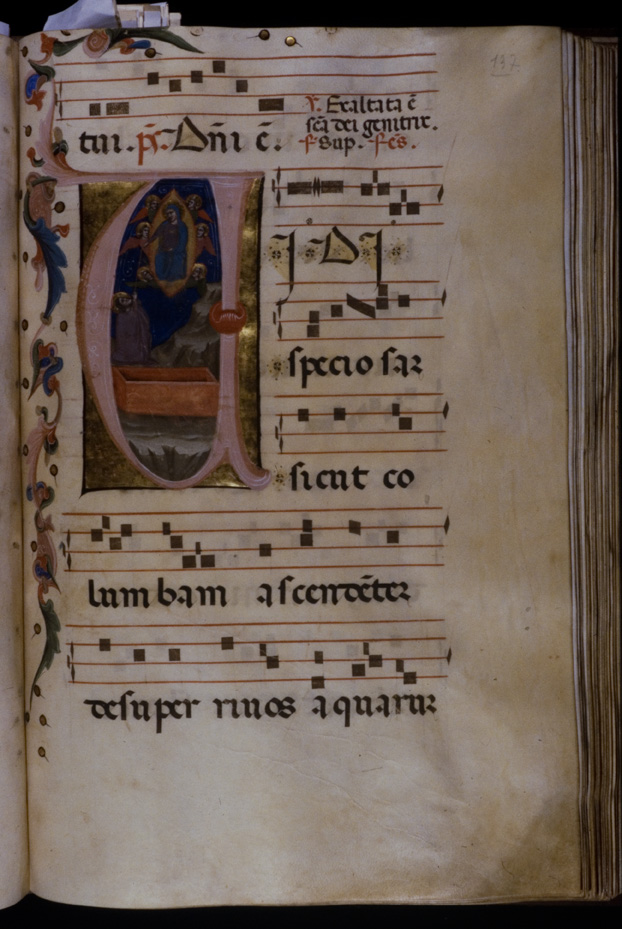 137
tui. p̄s. Dn̄i ē.
℣. Exaltata ē
sc̄a dei genitrix.
sup. fēs.
VIDI
speciosaꝛ
sicut co
lumbam ascendēteꝫ
desuper riuos aquaruꝫ